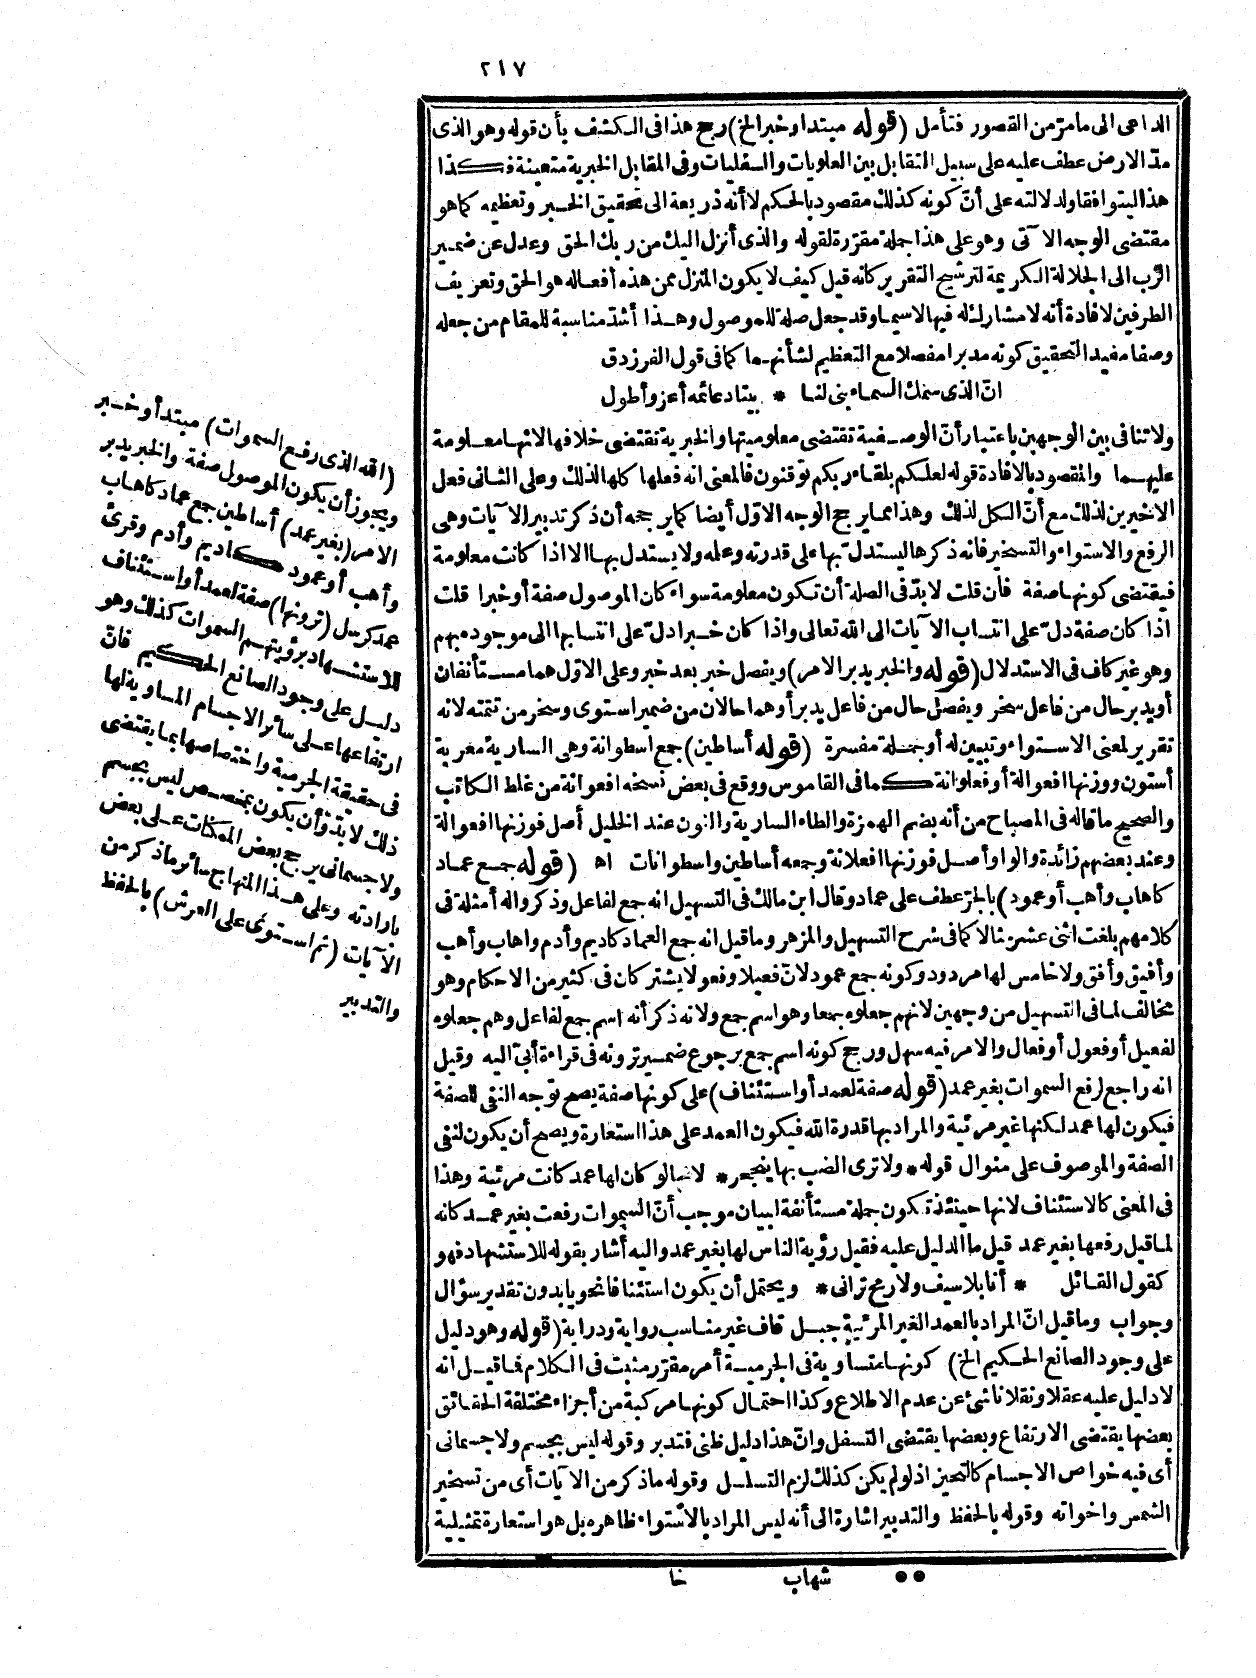 ٢١٧
الداعى الى ما مرّ من القصور فتأمل (قوله مبتدا وخبر الخ) رجح هذا فى الكشف بأن قوله وهو الذى
مدّ الارض عطف عليه على سبيل التقابل بين العلويات والسفليات وفى المقابل الخبرية متعينة فكذا
هذا ليتوافقا ولدلالته على أنّ كونه كذلك مقصود بالحكم لا أنه ذريعة الى تحقيق الخبر وتعظيمه كما هو
مقتضى الوجه الآتى وهو على هذا جملة مقرّرة لقوله والذى أنزل اليك من ربك الحق وعدل عن ضمير
الرّب الى الجلالة الكريمة لترشيح التقرير كانه قيل كيف لا يكون المنزل ممن هذه أفعاله هو الحق وتعريف
الطرفين لافادة أنه لا مشارك له فيها لاسيما وقد جعل صلة للموصول وهذا أشدّ مناسبة للمقام من جعله
وصفا مفيد التحقيق كونه مدبرا مفصلا مع التعظيم لشأنهما كما فى قول الفرزدق
انّ الذى سمك السماء بنى لنا * بيتا دعائمه أعز وأطول
ولا تنافى بين الوجهين باعتبار أنّ الوصفية تقتضى معلوميتها والخبرية تقتضى خلافها لانها معلومة
عليهما والمقصود بالافادة قوله لعلكم بلقاء ربكم توقنون فالمعنى انه فعلها كلها لذلك وعلى الثانى فعل
الاخيرين لذلك مع أنّ الكل لذلك وهذا مما يرجح الوجه الاوّل أيضا كما يرجحه أن ذكر تدبير الآيات وهى
الرفع والاستواء والتسخير فانه ذكرها ليستدل بها على قدرته وعلمه ولا يستدل بها الا اذا كانت معلومة
فيقتضى كونها صفة فان قلت لا بدّ فى الصلة أن تكون معلومة سواء كان الموصول صفة أو خبرا قلت
اذا كان صفة دلّ على انتساب الآيات الى الله تعالى واذا كان خبرا دلّ على انتسابها الى موجود مبهم
وهو غير كاف فى الاستدلال (قوله والخبر يدبر الامر) ويفصل خبر بعد خبر وعلى الاوّل هما مستأنفان
أو يدبر حال من فاعل سخر ويفصل حال من فاعل يدبر أو هما حالان من ضمير استوى وسخر من تتمته لانه
تقرير لمعنى الاستواء وتبيين له أو جملة مفسرة (قوله أساطين) جمع اسطوانة وهى السارية معربة
أستون ووزنها افعوالة أو فعلوانة كما فى القاموس ووقع فى بعض نسخه افعوانة من غلط الكاتب
والصحيح ما قاله فى المصباح من أنه بضم الهمزة والطاء السارية والنون عند الخليل أصل فوزنها افعوالة
وعند بعضهم زائدة والواو أصل فوزنها افعلانة وجمعه أساطين واسطوانات اه (قوله جمع عماد
كاهاب وأهب أو عمود) بالجرّ عطف على عماد وقال ابن مالك فى التسهيل انه جمع لفاعل وذكروا له أمثلة فى
كلامهم بلغت اثنى عشر مثالا كما فى شرح التسهيل والمزهر وما قيل انه جمع العماد كاديم وأدم واهاب وأهب
وأفيق وأفق ولا خامس لها مردود وكونه جمع عمود لانّ فعيلا وفعولا يشتركان فى كثير من الاحكام وهو
مخالف لما فى التسهيل من وجهين لانهم جعلوه جمعا وهو اسم جمع ولانه ذكر أنه اسم جمع لفاعل وهم جعلوه
لفعيل أو فعول أو فعال والامر فيه سهل ورجح كونه اسم جمع برجوع ضمير ترونه فى قراءة أبىّ اليه وقيل
انه راجع لرفع السموات بغير عمد (قوله صفة لعمد أو استئناف) على كونها صفة يصح توجه النفى للصفة
فيكون لها عمد لكنها غير مرئية والمراد بها قدرة الله فيكون العمد على هذا استعارة ويصح أن يكون لنفى
الصفة والموصوف على منوال قوله * ولا ترى الضب بها ينجحر * لانها لو كان لها عمد كانت مرئية وهذا
فى المعنى كالاستئناف لانها حينئذ تكون جملة مستأنفة لبيان موجب أنّ السموات رفعت بغير عمد كانه
لما قيل رفعها بغير عمد قيل ما الدليل عليه فقيل رؤية الناس لها بغير عمد واليه أشار بقوله للاستشهاد فهو
كقول القائل * أنا بلا سيف ولا رمح ترانى * ويحتمل أن يكون استئنافا نحويا بدون تقدير سؤال
وجواب وما قيل انّ المراد بالعمد الغير المرئية جبل قاف غير مناسب رواية ودراية (قوله وهو دليل
على وجود الصانع الحكيم الخ) كونها متساوية فى الجرمية أمر مقرّر مثبت فى الكلام فما قيل انه
لا دليل عليه عقلا ونقلا ناشئ عن عدم الاطلاع وكذا احتمال كونها مركبة من أجزاء مختلفة الحقائق
بعضها يقتضى الارتفاع وبعضها يقتضى التسفل وانّ هذا دليل ظنى فتدبر وقوله ليس بجسم ولا جسمانى
أى فيه خواص الاجسام كالتحيز اذ لو لم يكن كذلك لزم التسلسل وقوله ما ذكر من الآيات أى من تسخير
الشمس واخواته وقوله بالحفظ والتدبير اشارة الى أنه ليس المراد بالاستواء ظاهره بل هو استعارة تمثيلية
(الله الذى رفع السموات) مبتدأ وخبر
ويجوز أن يكون الموصول صفة والخبر يدبر
الامر (بغير عمد) أساطين جمع عماد كاهاب
وأهب أو عمود كاديم وأدم وقرئ
عمد كرسل (ترونها) صفة لعمد أو استئناف
للاستشهاد برؤيتهم السموات كذلك وهو
دليل على وجود الصانع الحكيم فانّ
ارتفاعها على سائر الاجسام المساوية لها
فى حقيقة الجرمية واختصاصها بما يقتضى
ذلك لا بدّ وأن يكون بمخصص ليس بجسم
ولا جسمانى يرجح بعض الممكنات على بعض
بارادته وعلى هذا المنهاج سائر ما ذكر من
الآيات (ثم استوى على العرش) بالحفظ
والتدبير
شهاب خا